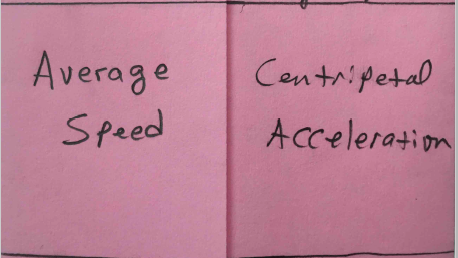 Average
Speed
Centripetal
Acceleration